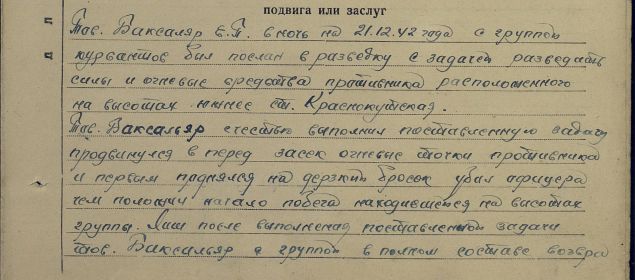 подвига или заслуг
Тов. Ваксаляр Е.П. в ночь на 21.12.42 года с группой
курсантов был послан в разведку с задачей разведать
силы и огневые средства противника расположенного
на высотах южнее ст. Краснокутская.
Тов. Ваксальяр с честью выполнил поставленную задачу
продвинулся в перед засек огневые точки противника
и первым паднялся на дерзкий бросок убил афицера
чем положил начало побега находившейся на высотах
группы. Лиш после выполнения поставленной задачи
тов. Ваксальяр с группой в полном составе возвра